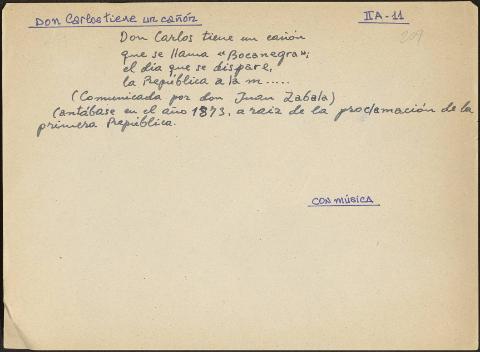 Don Carlos tiene un cañón
IIA-11
209
Don Carlos tiene un cañón
que se llama "Bocanegra";
el día que se dispare,
la República a la m.....
(Comunicada por don Juan Zabala)
Cantábase en el año 1873, a raíz de la proclamación de la
primera República.
CON MÚSICA